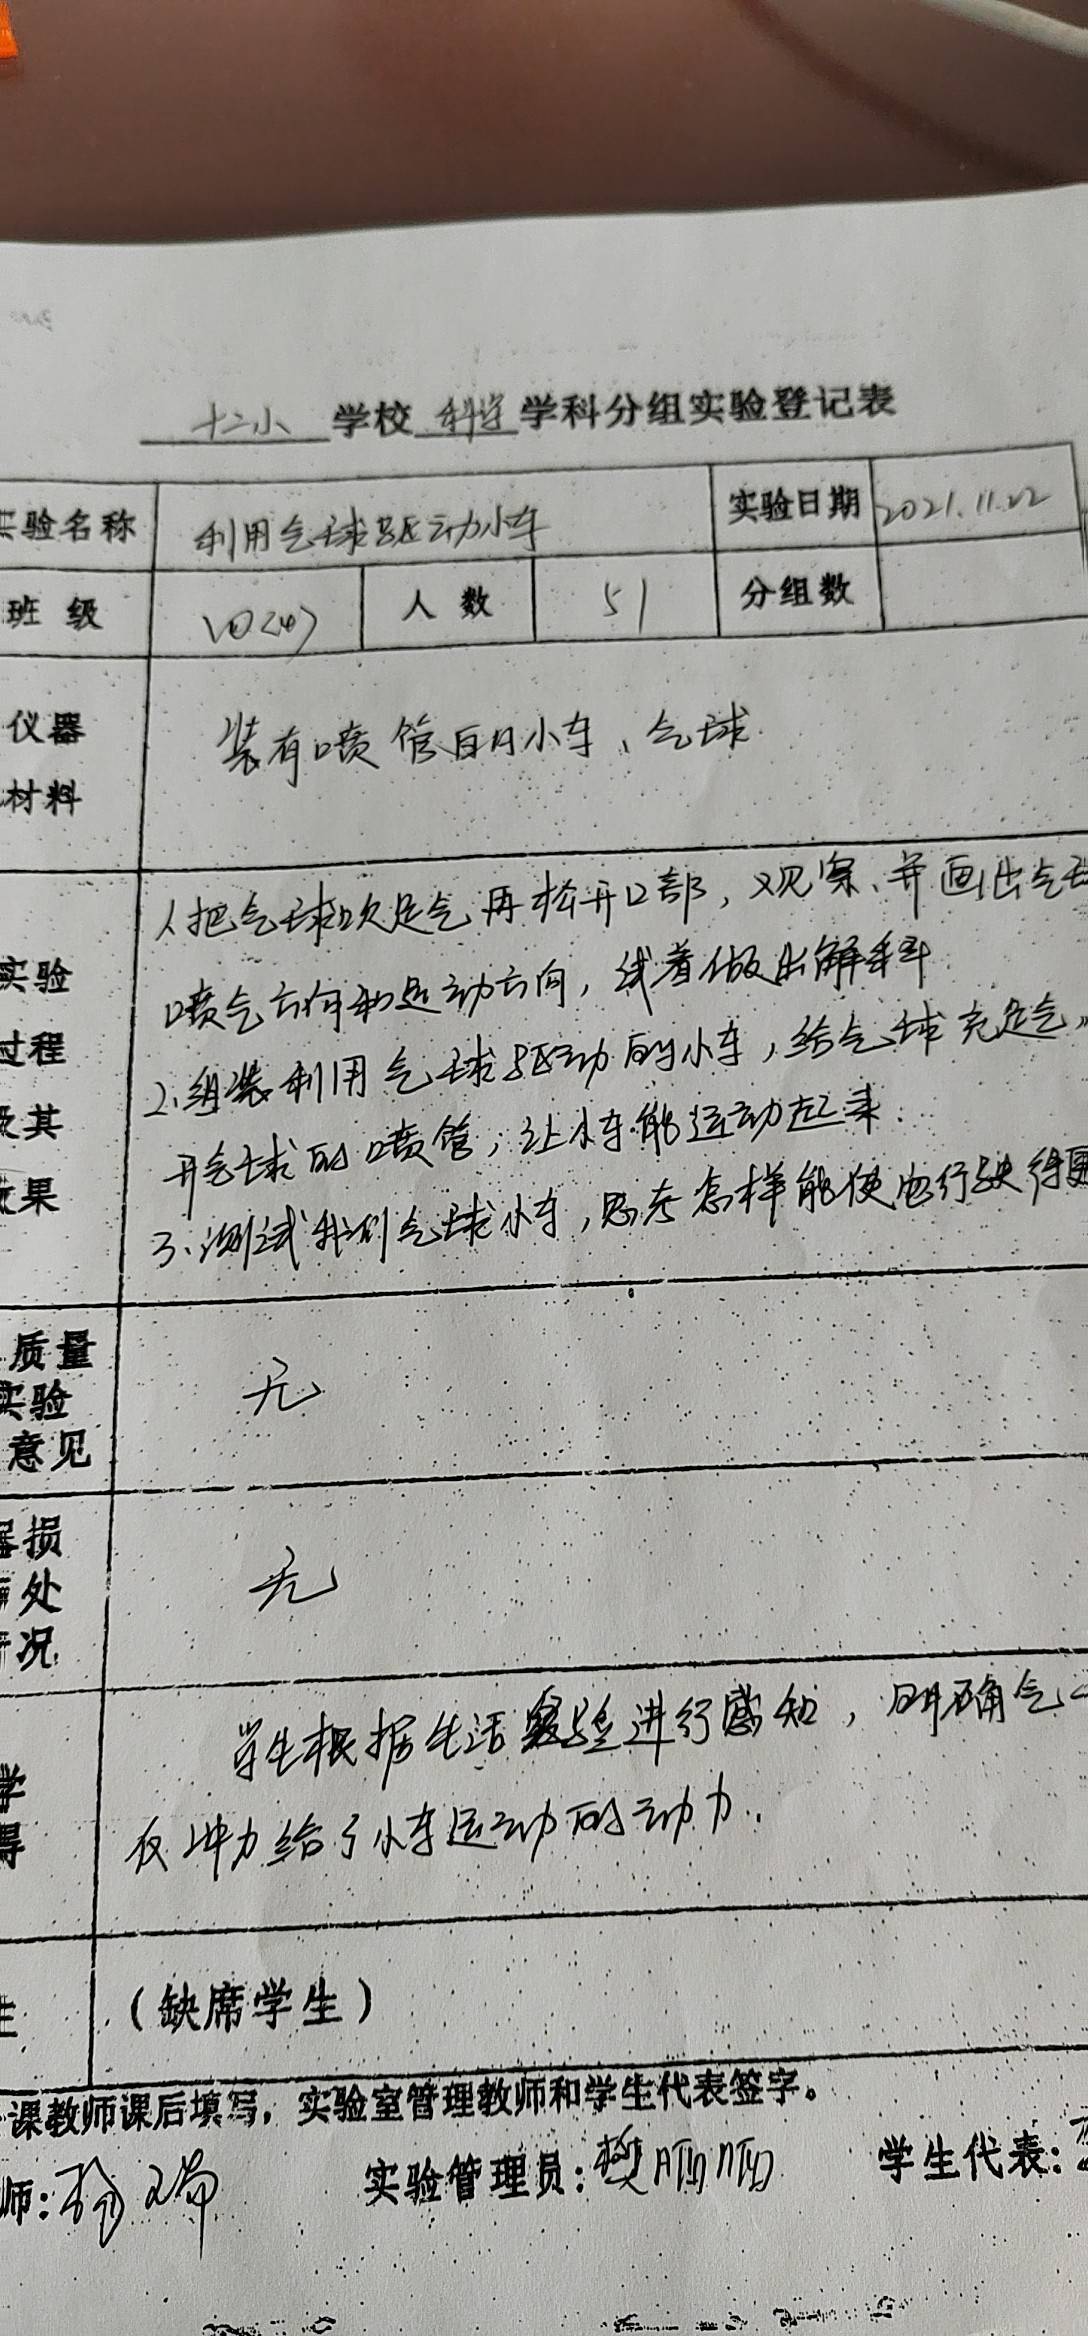 十二小 学校 科学 学科分组实验登记表
实验名称 利用气球驱动小车 实验日期 2021.11.22
班 级 人 数 51 分组数
仪器 装有喷管的小车、气球
材料
1.把气球吹足气再松开口部,观察、并画出气球
实验 喷气方向和运动方向,试着做出解释
过程 2.组装利用气球驱动的小车,给气球充足气,
及其 开气球的喷管,让小车能运动起来.
效果 3.测试我们气球小车,思考怎样能使它行驶得更
质量
实验 无
意见
器损
处 无
况
学 学生根据生活经验进行感知,明确气
得 反冲力给了小车运动的动力.
生 (缺席学生)
课教师课后填写,实验室管理教师和学生代表签字。
师: 实验管理员:樊丽丽 学生代表: